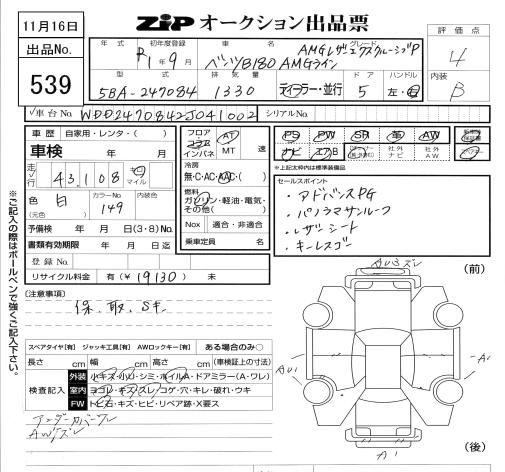 11月16日
ZIP オークション出品票
出品No.
539
評価点
4
内装
B
年式 初年度登録 車名 グレード
R1年9月 ベンツB180 AMGライン AMGレザーエクスクルーシブP
型式 排気量 ドア ハンドル
5BA-247084 1330 ディーラー・並行 5 左・右
車台No. WDD2470842J041002 シリアルNo.
車歴 自家用・レンタ( )
車検 年 月
走行 43,108 キロ マイル
色 (元色) 白 カラーNo 149 内装色
予備検 年 月 日(3・8)No.
書類有効期限 年 月 日迄
登録No
リサイクル料金 有(¥19130) 未
フロア コラム インパネ AT MT
冷房
無・C・AC・AAC・( )
燃料
ガソリン・軽油・電気・その他( )
Nox 適合・非適合
乗車定員 名
PS PW SR 革 AW
ナビ エアB 社外ナビ 社外AW
※上記太枠内は標準装備品
セールスポイント
・アドバンスPG
・パノラマサンルーフ
・レザーシート
・キーレスゴー
※ご記入の際はボールペンで強くご記入下さい。
[注意事項]
保、取、Sキー
スペアタイヤ[有] ジャッキ工具[有] AWロックキー[有] ある場合のみ○
長さ cm 幅 cm 高さ cm (車検証上の寸法)
検査記入
外装 小キズ・小凹・シミ・ホイルA・ドアミラー(A・ワレ)
室内 ヨゴレ・キズ・スレ・コゲ・穴・キレ・破れ・ウキ
FW トビ石・キズ・ヒビ・リペア跡・X要ス
アンダーカバーワレ
AWキズ
(前)
A1
A1
(後)
会場